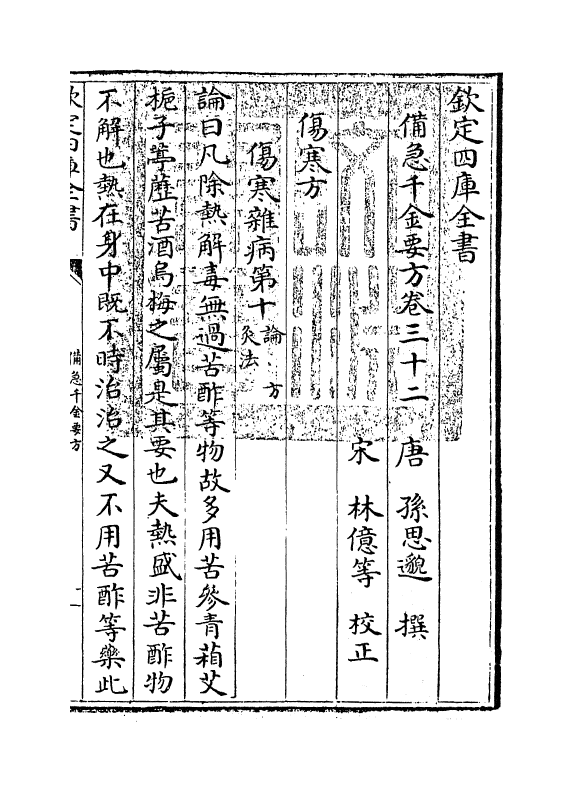 欽定四庫全書
備急千金要方卷三十二
唐 孫思邈 撰
宋 林億等 校正
傷寒方
傷寒雜病第十 論 方 灸法
論曰凡除熱解毒無過苦酢等物故多用苦參青葙艾
梔子葶藶苦酒烏梅之屬是其要也夫熱盛非苦酢物
不解也熱在身中既不時治治之又不用苦酢等藥此
欽定四庫全書
備急千金要方